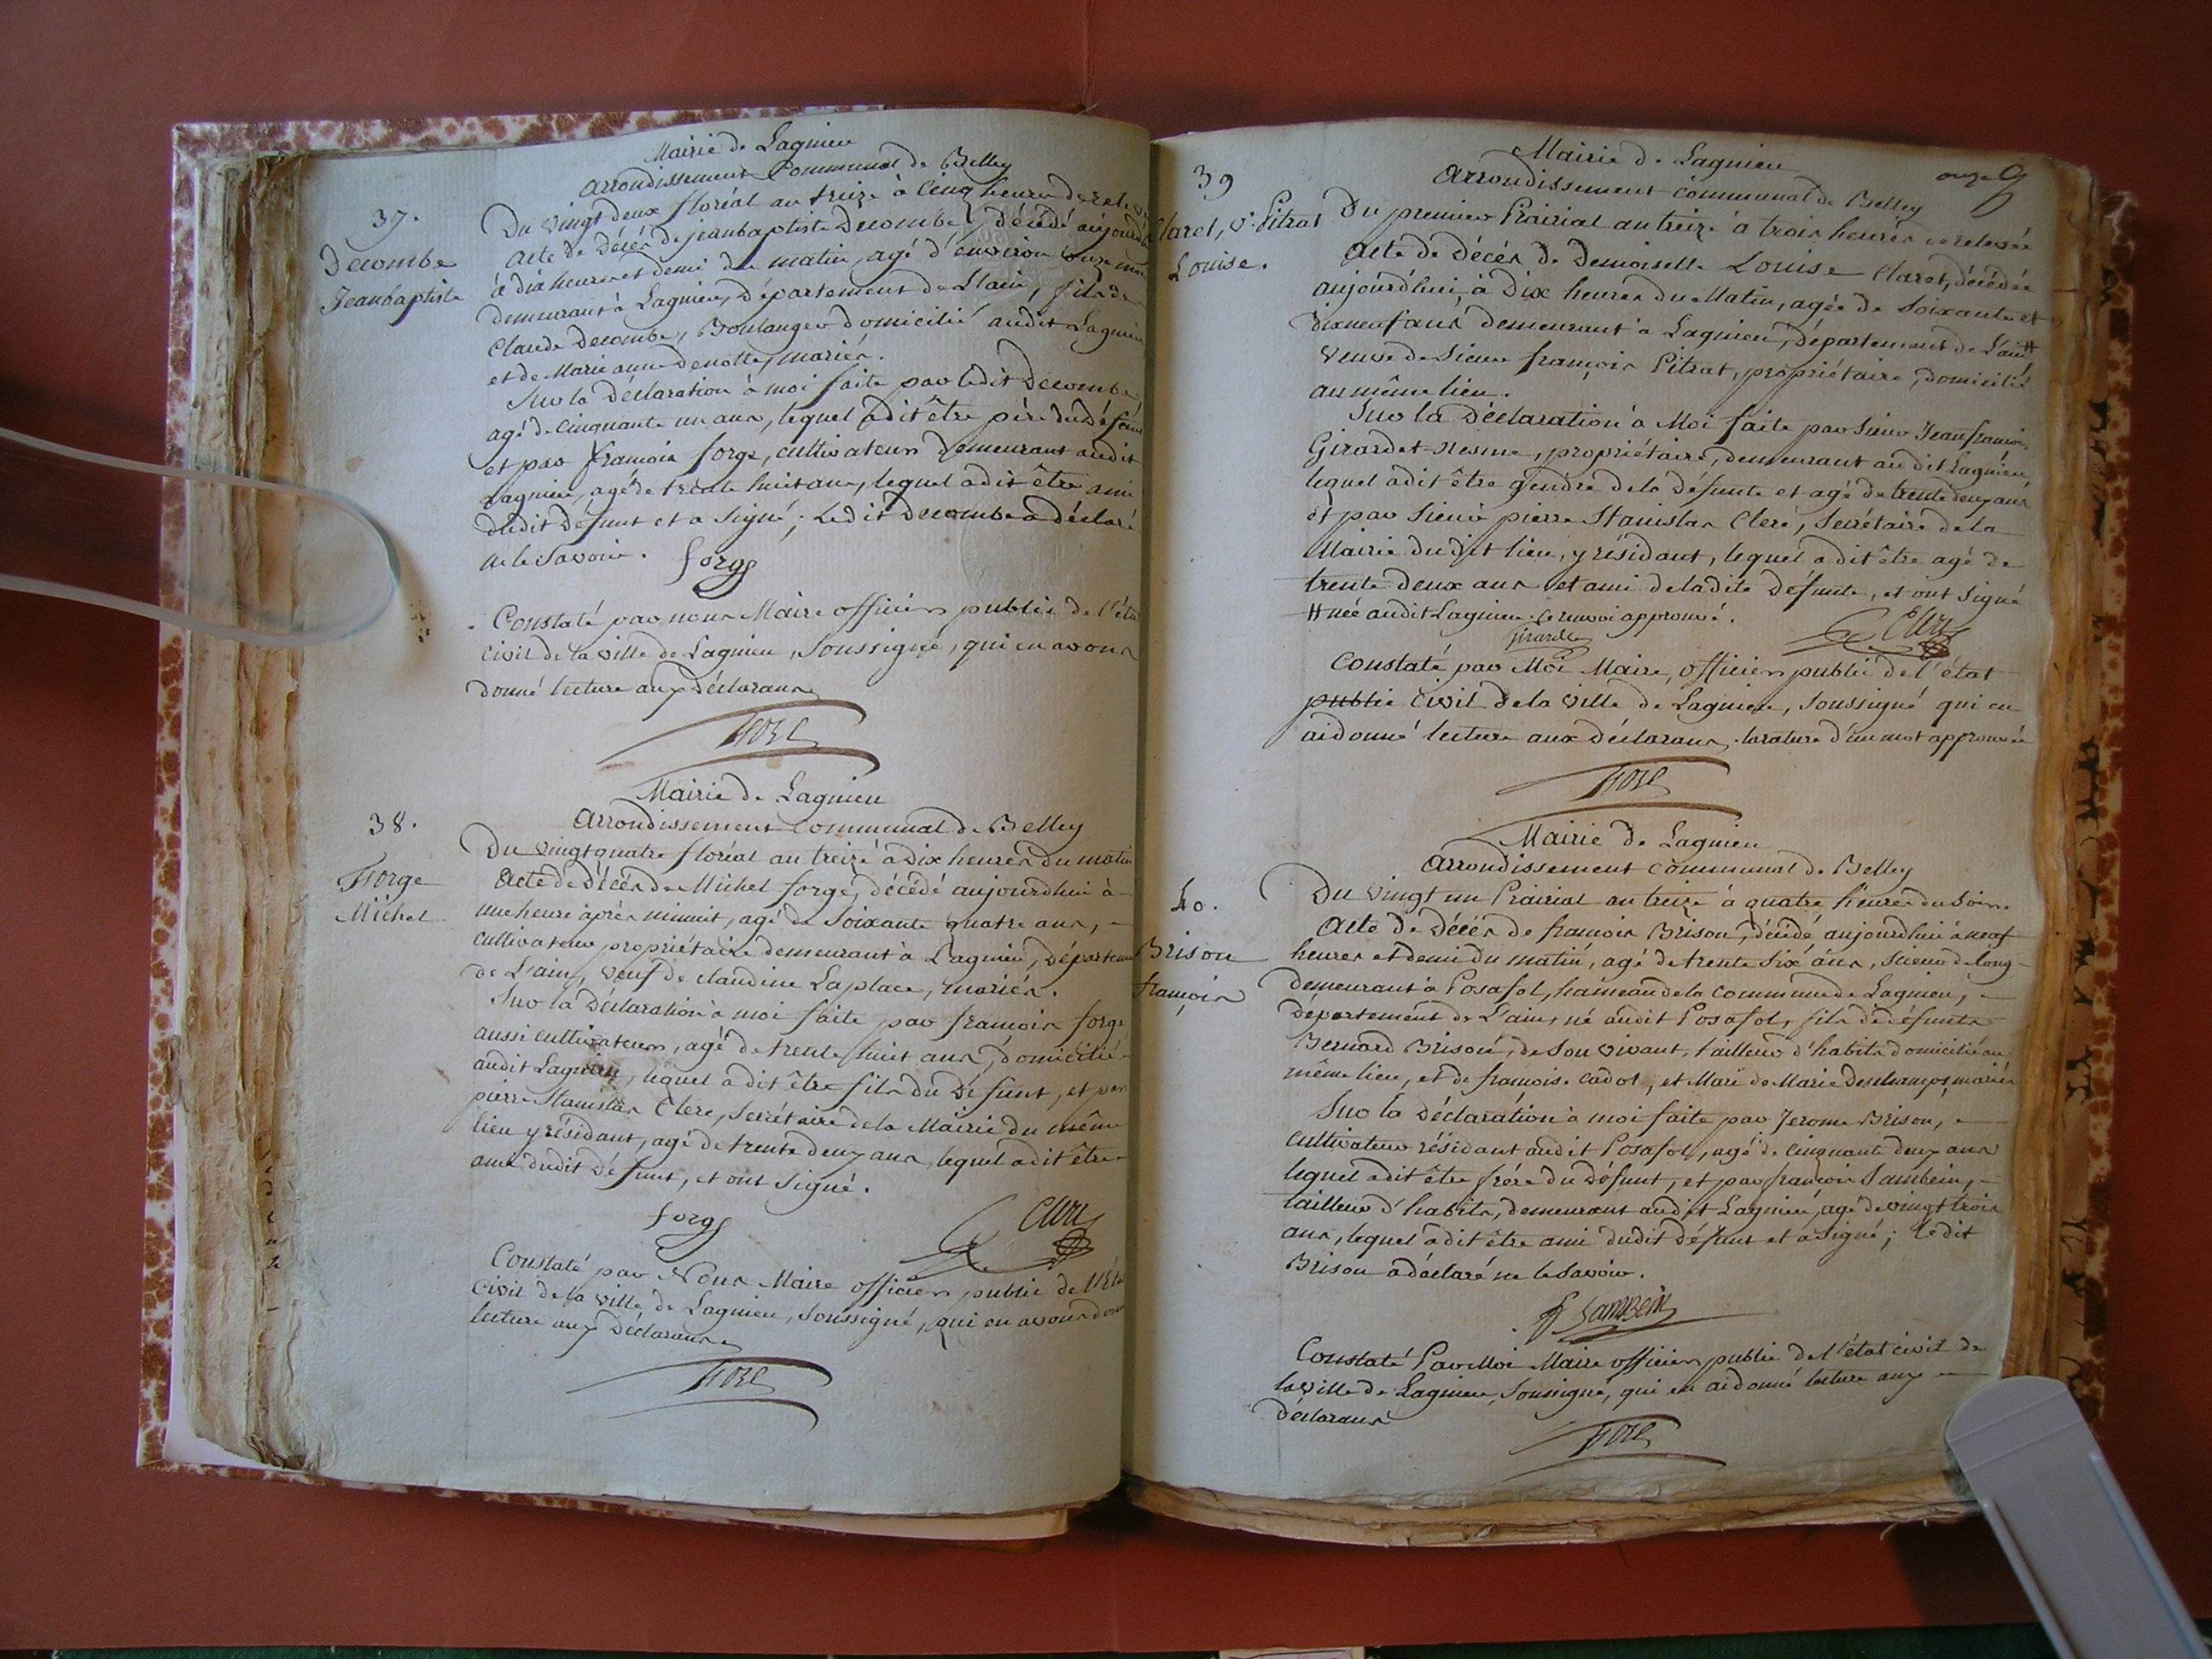 Mairie de Lagnieu
Arrondissement Communal de Belley
37.
Decombe
Jeanbaptiste
Du vingt deux floréal an treize à Cinq heures de relevée
Acte de Décès de jeanbaptiste Decombe, décédé aujourd'hui
à dix heures et demi du matin, agé d'environ onze mois
demeurant à Lagnieu, Département de L'ain, fils de
Claude Decombe, Boulanger domicilié audit Lagnieu
et de Marie anne denotte, mariés.
Sur la Déclaration à moi faite par ledit Decombe
agé de Cinquante un ans, lequel a dit être père du Défunt
et par françois forge, cultivateur demeurant audit
Lagnieu, agé de trente huit ans, lequel a dit être ami
dudit Défunt et a Signé; Ledit Decombe a déclaré
ne le Savoir. forge
Constaté par nous Maire officier public de l'état
civil de la ville de Lagnieu, Soussigné, qui en avons
donné lecture aux Déclarans
Mairie de Lagnieu
Arrondissement Communal de Belley
38.
Forge
Michel
Du vingt quatre floréal an treize à Dix heures du matin
Acte de Décès de Michel forge, décédé aujourdhui à
une heure après minuit, agé de Soixante quatre ans,
cultivateur propriétaire demeurant à Lagnieu, Département
de L'ain, veuf de claudine Laplace, mariés.
Sur la Déclaration à moi faite par françois forge
aussi cultivateur, agé de trente huit ans, domicilié
audit Lagnieu, lequel a dit être fils du Défunt, et par
pierre Stanislas Clere, Secrétaire de la Mairie du même
lieu y résidant, agé de trente deux ans, lequel a dit être
ami dudit Défunt, et ont Signé.
forge Clere
Constaté par Nous Maire officier public de l'Etat
Civil de la ville de Lagnieu, Soussigné, qui en avons donné
lecture aux Déclarans
Mairie de Lagnieu
onze
Arrondissement communal de Belley
39
Claret, Ve. Pitrat
Louise.
Du premier Prairial an treize à trois heures de relevée
Acte de Décès de Demoiselle Louise Claret, décédée
aujourd'hui, à Dix heures du Matin, agée de Soixante et
dixneuf ans demeurant à Lagnieu, département de L'ain #
veuve de Sieur françois Pitrat, propriétaire, domicilié
au même lieu.
Sur la Déclaration à Moi faite par Sieur Jeanfrançois
Girardet-Nesme, propriétaire, demeurant audit Lagnieu
lequel a dit être gendre de la Défunte et agé de trente deux ans
et par Sieur pierre Stanislas Cleré, Secrétaire de la
Mairie dudit lieu, y résidant, lequel a dit être agé de
trente deux ans et ami de ladite Défunte, et ont Signé
# née audit Lagnieu. Ce renvoi approuvé.
Clere
Constaté par Moi Maire, officier public de l'état
public Civil de la Ville de Lagnieu, soussigné qui en
ai donné lecture aux déclarans. la rature d'un mot approuvée
Mairie de Lagnieu
Arrondissement communal de Belley
40.
Brison
françois
Du vingt un Prairial an treize à quatre heures du Soir.
Acte de Décès de françois Brison, décédé aujourdhui à neuf
heures et demi du matin, agé de trente Six ans, Scieur de long
demeurant à Posafol, hameau de la Commune de Lagnieu,
département de L'ain, né audit Posafol, fils de défunts
Bernard Brison, de Son vivant, tailleur d'habits domicilié au
même lieu, et de françoise Cadot, et Mari de Marie Deschamps, mariés
Sur la Déclaration à moi faite par Jerome Brison,
cultivateur résidant audit Posafol, agé de Cinquante deux ans
lequel a dit être frère du Défunt, et par françois Sambein,
tailleur d'habits, demeurant audit Lagnieu, agé de vingt trois
ans, lequel a dit être ami dudit Défunt et a Signé; Ledit
Brison a déclaré ne le Savoir.
f Sambein
Constaté Par Moi Maire officier public de l'état civil de
la ville de Lagnieu, Soussigné, qui en ai donné lecture aux
déclarans